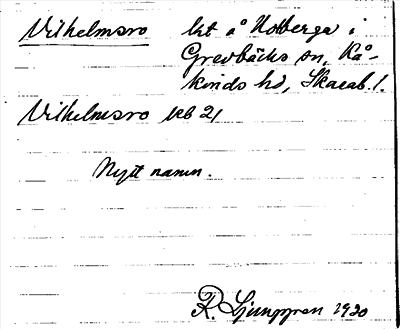 Vilhelmsro lht å Holberga i
Grevbäcks sn, Kå-
kinds hd, Skarab. l.
Vilhelmsro kb 21
Nytt namn.
R. Ljunggren 1920